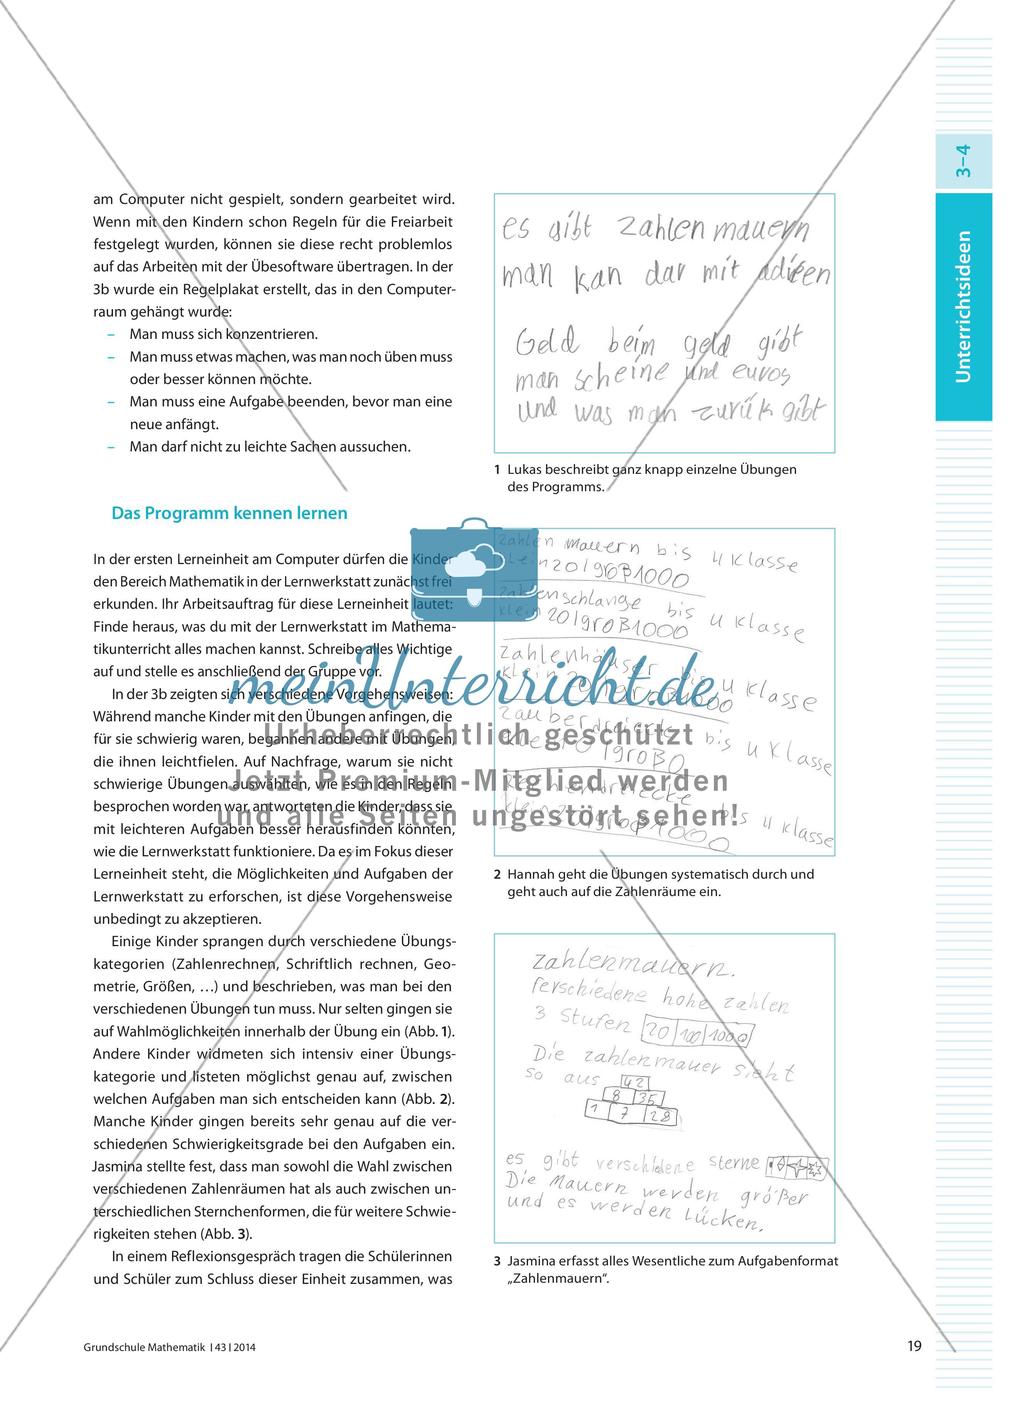 am Computer nicht gespielt, sondern gearbeitet wird.
Wenn mit den Kindern schon Regeln für die Freiarbeit
festgelegt wurden, können sie diese recht problemlos
auf das Arbeiten mit der Übesoftware übertragen. In der
3b wurde ein Regelplakat erstellt, das in den Computer-
raum gehängt wurde:
– Man muss sich konzentrieren.
– Man muss etwas machen, was man noch üben muss
oder besser können möchte.
– Man muss eine Aufgabe beenden, bevor man eine
neue anfängt.
– Man darf nicht zu leichte Sachen aussuchen.
Das Programm kennen lernen
In der ersten Lerneinheit am Computer dürfen die Kinder
den Bereich Mathematik in der Lernwerkstatt zunächst frei
erkunden. Ihr Arbeitsauftrag für diese Lerneinheit lautet:
Finde heraus, was du mit der Lernwerkstatt im Mathema-
tikunterricht alles machen kannst. Schreibe alles Wichtige
auf und stelle es anschließend der Gruppe vor.
In der 3b zeigten sich verschiedene Vorgehensweisen:
Während manche Kinder mit den Übungen anfingen, die
für sie schwierig waren, begannen andere mit Übungen,
die ihnen leichtfielen. Auf Nachfrage, warum sie nicht
schwierige Übungen auswählten, wie es in den Regeln
besprochen worden war, antworteten die Kinder, dass sie
mit leichteren Aufgaben besser herausfinden könnten,
wie die Lernwerkstatt funktioniere. Da es im Fokus dieser
Lerneinheit steht, die Möglichkeiten und Aufgaben der
Lernwerkstatt zu erforschen, ist diese Vorgehensweise
unbedingt zu akzeptieren.
Einige Kinder sprangen durch verschiedene Übungs-
kategorien (Zahlenrechnen, Schriftlich rechnen, Geo-
metrie, Größen, …) und beschrieben, was man bei den
verschiedenen Übungen tun muss. Nur selten gingen sie
auf Wahlmöglichkeiten innerhalb der Übung ein (Abb. 1).
Andere Kinder widmeten sich intensiv einer Übungs-
kategorie und listeten möglichst genau auf, zwischen
welchen Aufgaben man sich entscheiden kann (Abb. 2).
Manche Kinder gingen bereits sehr genau auf die ver-
schiedenen Schwierigkeitsgrade bei den Aufgaben ein.
Jasmina stellte fest, dass man sowohl die Wahl zwischen
verschiedenen Zahlenräumen hat als auch zwischen un-
terschiedlichen Sternchenformen, die für weitere Schwie-
rigkeiten stehen (Abb. 3).
In einem Reflexionsgespräch tragen die Schülerinnen
und Schüler zum Schluss dieser Einheit zusammen, was
es gibt Zahlen mauern
man kan dar mit aditen
Geld beim geld gibt
man scheine und euros
und was man zurük gibt
1 Lukas beschreibt ganz knapp einzelne Übungen
des Programms.
Zahlen Mauern bis 4 Klasse
klein 20 | groß 1000
zahlenschlange bis 4 Klasse
klein 20 | groß 1000
zahlenhäuser bis 4 Klasse
bis 4 Klasse
bis 4 Klasse
2 Hannah geht die Übungen systematisch durch und
geht auch auf die Zahlenräume ein.
Zahlenmauern.
ferschiedene hohe zahlen
3 Stufen 20 | 100 | 1000
Die zahlenmauer sieht
so aus 42
8 35
1 7 28
es gibt verschidene sterne
Die Mauern werden größer
und es werden Lücken.
3 Jasmina erfasst alles Wesentliche zum Aufgabenformat
„Zahlenmauern“.
3–4
Unterrichtsideen
meinUnterricht.de
Urheberrechtlich geschützt
Jetzt Premium-Mitglied werden
und alle Seiten ungestört sehen!
Grundschule Mathematik | 43 | 2014
19